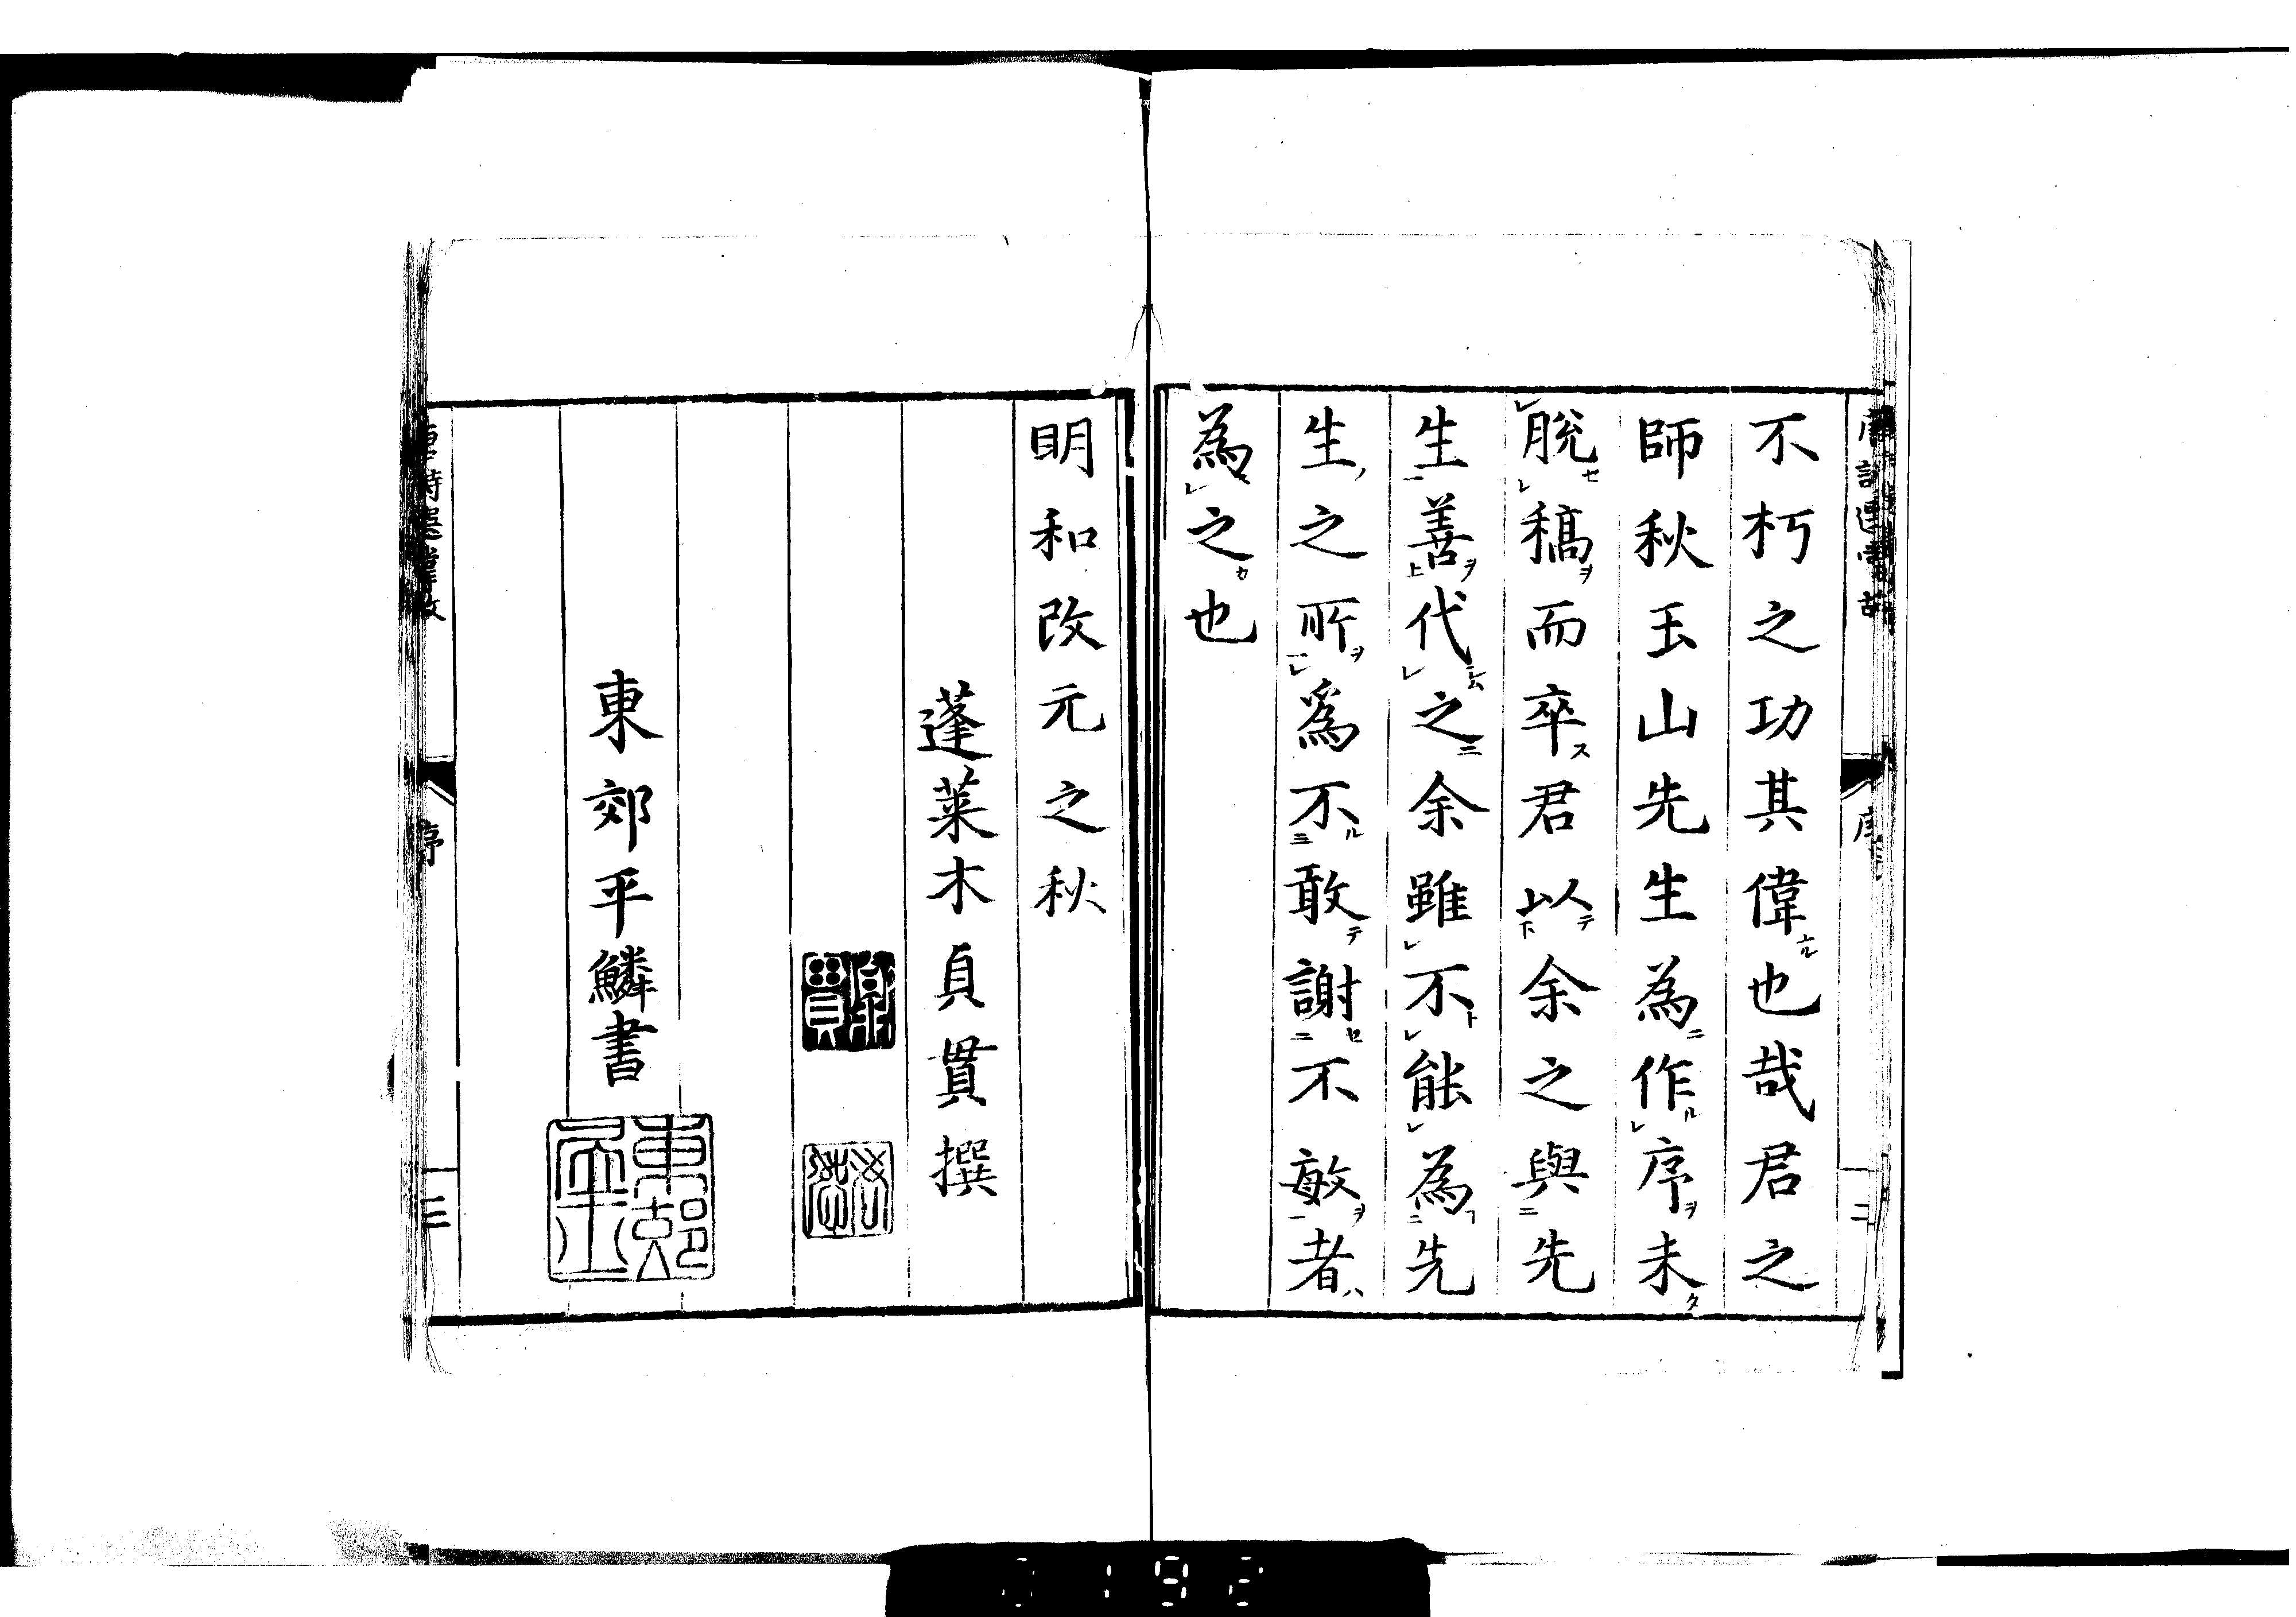 不朽之功其偉也哉君之
師秋玉山先生為作序未
脫稿而卒君以余之與先
生善代之余雖不能為先
生之所為不敢謝不敏者
為之也
序
二
明和改元之秋
蓬萊木貞貫撰
東郊平鱗書
序
三